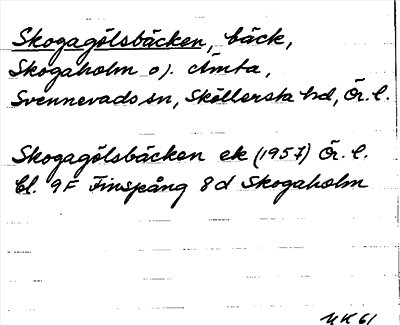 Skogagölsbäcken, bäck,
Skogaholm o). Åmta,
Svennevads sn, Sköllersta hd, Ör. l.
Skogagölsbäcken ek (1957) Ör. l.
Bl. 9F Finspång 8d Skogaholm
KK 61